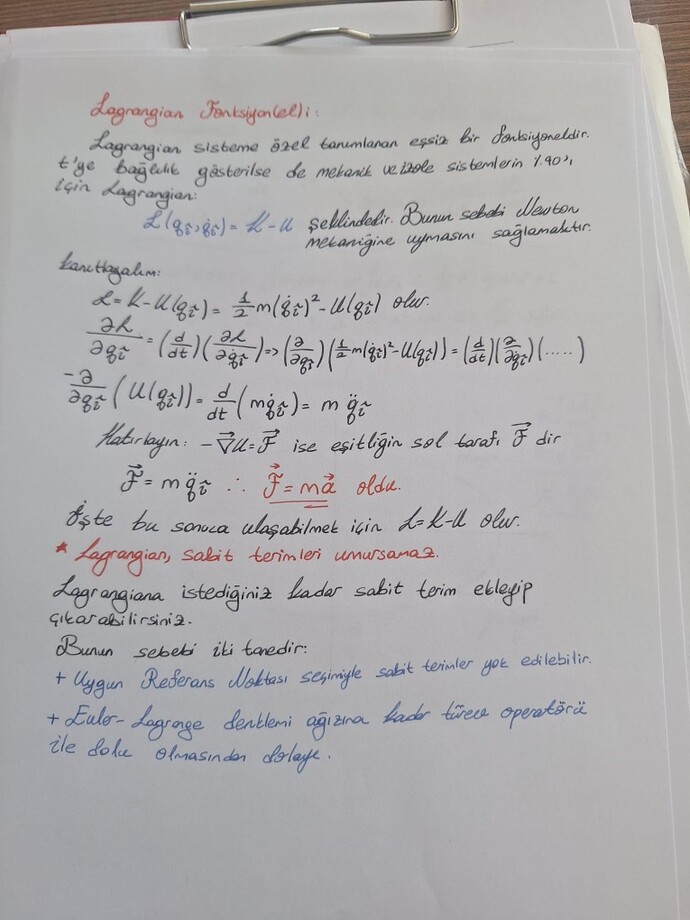 Lagrangian Fonksiyon(el)i:
Lagrangian sisteme özel tanımlanan eşsiz bir fonksiyoneldir.
t'ye bağlılık gösterilse de mekanik ve izole sistemlerin %90'ı
için Lagrangian:
L(qᵢ, q̇ᵢ) = K - U şeklindedir. Bunun sebebi Newton
mekaniğine uymasını sağlamaktır.
Kanıtlayalım:
L = K - U(qᵢ) = 1/2 m(q̇ᵢ)² - U(qᵢ) olur.
∂L/∂qᵢ = (d/dt)(∂L/∂q̇ᵢ) => (∂/∂qᵢ)(1/2 m(q̇ᵢ)² - U(qᵢ)) = (d/dt)(∂/∂q̇ᵢ)(.....)
-∂/∂qᵢ (U(qᵢ)) = d/dt (mq̇ᵢ) = m q̈ᵢ
Hatırlayın: -∇⃗U = F⃗ ise eşitliğin sol tarafı F⃗ dir
F⃗ = m q̈ᵢ ∴ F⃗ = ma⃗ oldu.
İşte bu sonuca ulaşabilmek için L = K - U olur.
* Lagrangian, sabit terimleri umursamaz.
Lagrangiana istediğiniz kadar sabit terim ekleyip
çıkarabilirsiniz.
Bunun sebebi iki tanedir:
+ Uygun Referans Noktası seçimiyle sabit terimler yok edilebilir.
+ Euler-Lagrange denklemi ağızına kadar türev operatörü
ile dolu olmasından dolayı.